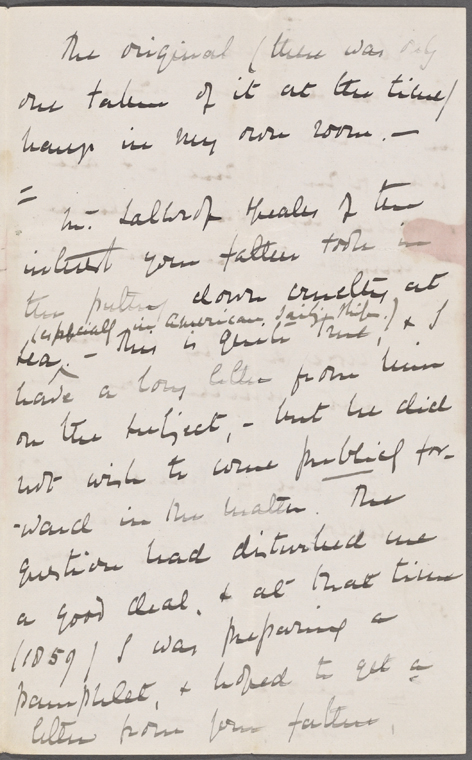 The original (there was only
one taken of it at the time)
hangs in my own room. —
=
Mr. Lathrop speaks of the
interest your father took in
the putting down cruelty at
(especially in American Sailing Ships.)
sea. - This is quite true, & I
have a long letter from him
on the subject, - but he did
not wish to come publicly for-
-ward in the matter. The
question had disturbed me
a good deal, & at that time
(1859) I was preparing a
pamphlet, & hoped to get a
letter from your father,